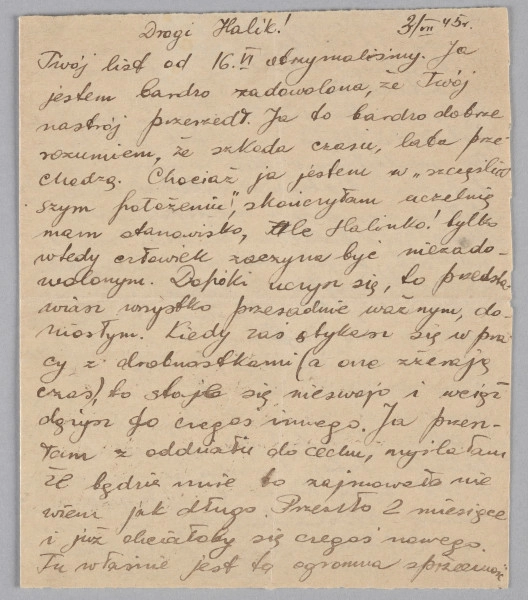 Drogi Halik! 3/VII 45r.
Twój list od 16.VI otrzymaliśmy. Ja
jestem bardzo zadowolona, że Twój
nastrój przeszedł. Ja to bardzo dobrze
rozumiem, że szkoda czasu, lata prze-
chodzą. Chociaż ja jestem w „szczęśliw
szym położeniu", skończyłam uczelnię
mam stanowisko, Ale Halinko! tylko
wtedy człowiek zaczyna być niezado-
wolonym. Dopóki uczysz się, to przedsta
wiasz wszystko przesadnie ważnym, do-
niosłym. Kiedy zaś stykasz się w pra
cy z drobnostkami (a one zżerają
czas), to staje się nieswojo i wciąż
dążysz do czegoś innego. Ja przesz-
łam z oddziału do cechu, myślałam
że będzie mnie to zajmowało nie
wiem jak długo. Przeszło 2 miesiące
i już chciałoby się czegoś nowego.
Tu właśnie jest ta ogromna sprzeczność